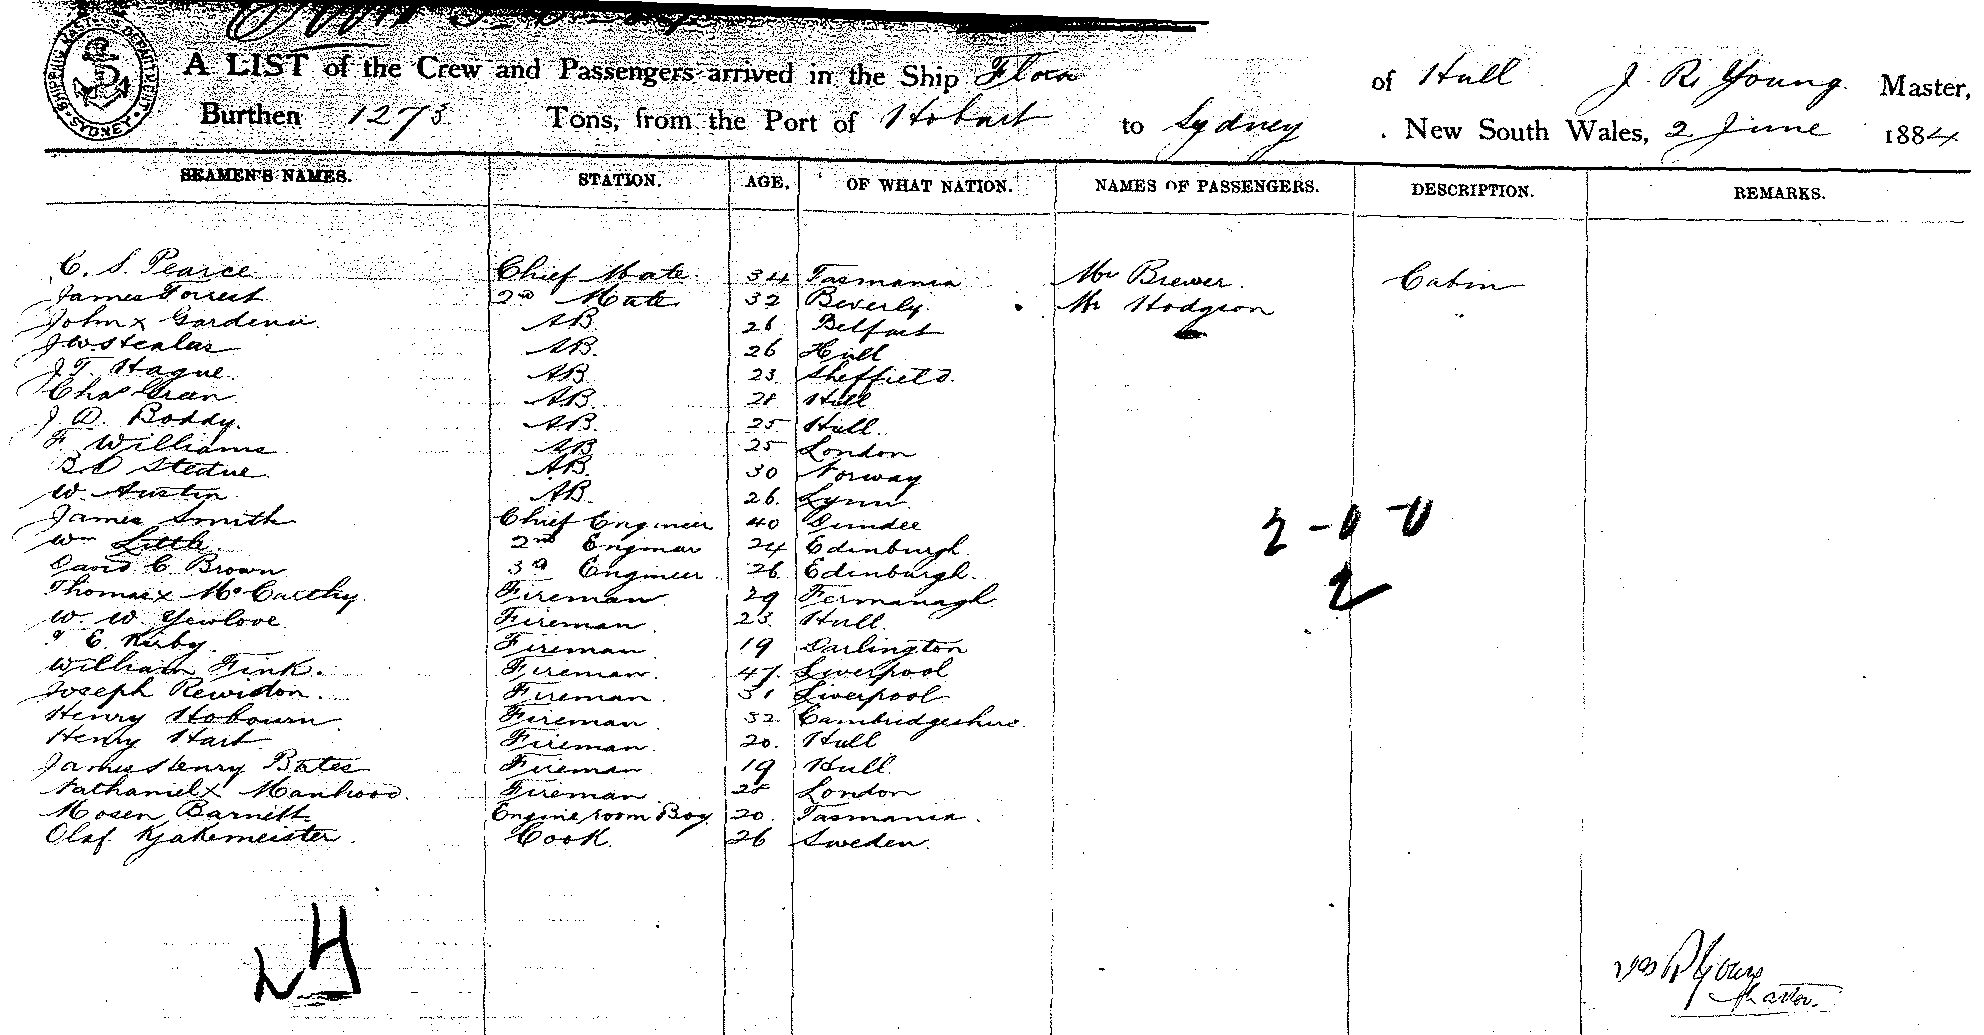 SHIPPING MASTER'S DEPARTMENT SYDNEY
A LIST of the Crew and Passengers arrived in the Ship Flora of Hull J. R. Young Master,
Burthen 1273 Tons, from the Port of Hobart to Sydney . New South Wales, 2 June 1884
SEAMEN'S NAMES. STATION. AGE. OF WHAT NATION. NAMES OF PASSENGERS. DESCRIPTION. REMARKS.
C. S. Pearce Chief Mate 34 Tasmania Mr Brewer Cabin
James Forrest 2nd Mate 32 Beverly Mr Hodgson
John x Gardener AB 26 Belfast
AB 26 Hull
J. T. Hague AB 23 Sheffield
Chas Green AB 28 Hull
J. D. Boddy. AB 25 Hull
F Williams AB 25 London
AB 30 Norway
W. Austin AB 26 Lynn
James Smith Chief Engineer 40 Dundee
Wm Little 2nd Engineer 24 Edinburgh
David C. Brown 3rd Engineer 26 Edinburgh
Thomas x McCarthy Fireman 29 Fermanagh
W. W. Yewlove Fireman 23 Hull
E. Kirby Fireman 19 Darlington
William Fink. Fireman 47 Liverpool
Joseph Fireman 31 Liverpool
Henry Hobourn Fireman 32 Cambridgeshire
Henry Hart Fireman 20 Hull
James Henry Bates Fireman 19 Hull
Nathaniel x Manhood Fireman 28 London
Mosen Barnett Engine room Boy 20 Tasmania
Olaf Kjakemeister Cook 26 Sweden
2-0-0
2
24
Jas R Young
Master